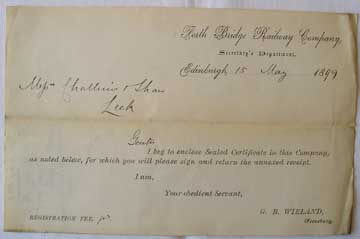 Forth Bridge Railway Company,
Secretary's Department,
Edinburgh, 15 May 1899
Messrs Challinor & Shaw
Leek
Gentn
I beg to enclose Sealed Certificate in this Company,
as noted below, for which you will please sign and return the annexed receipt.
I am,
Your obedient Servant,
G. B. WIELAND,
Secretary.
REGISTRATION FEE,